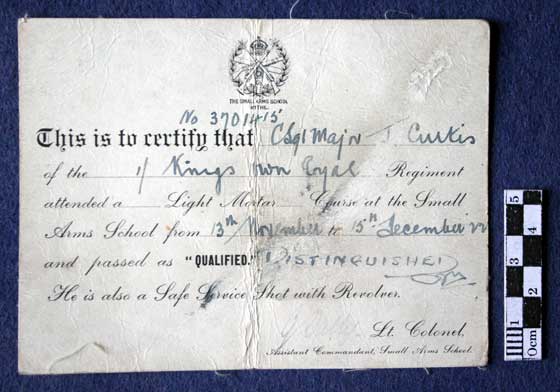 THE SMALL ARMS SCHOOL
HYTHE.
No 3701415
This is to certify that C Sgt Major J Curtis
of the 1/ Kings Own Royal Regiment
attended a Light Mortar Course at the Small
Arms School from 13th November to 15th December
and passed as "QUALIFIED." DISTINGUISHED
He is also a Safe Service Shot with Revolver.
Lt. Colonel,
Assistant Commandant, Small Arms School.
5
4
3
2
1
0cm